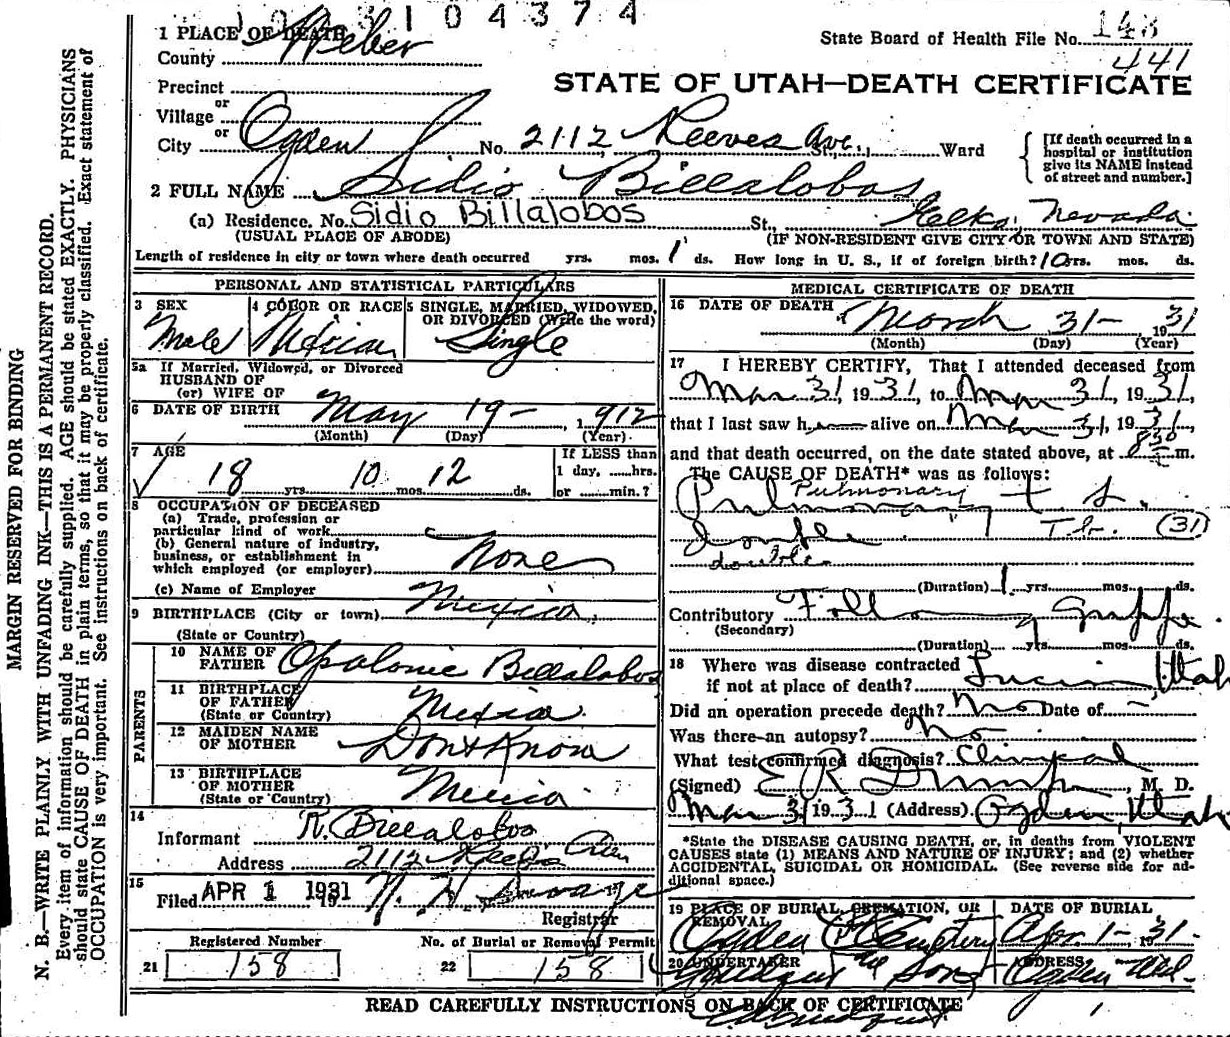 104374
1 PLACE OF DEATH
County Weber
State Board of Health File No. 143
441
STATE OF UTAH—DEATH CERTIFICATE
Precinct
or
Village
or
City Ogden No. 2112 Reeves Ave. St., Ward
[If death occurred in a hospital or institution give its NAME instead of street and number.]
2 FULL NAME Sidio Billalobos
(a) Residence. No. Sidio Billalobos St., Elko, Nevada
(USUAL PLACE OF ABODE) (IF NON-RESIDENT GIVE CITY OR TOWN AND STATE)
Length of residence in city or town where death occurred yrs. mos. 1 ds. How long in U. S., if of foreign birth? 10 yrs. mos. ds.
PERSONAL AND STATISTICAL PARTICULARS
3 SEX 4 COLOR OR RACE 5 SINGLE, MARRIED, WIDOWED, OR DIVORCED (Write the word)
Male Mexican Single
5a If Married, Widowed, or Divorced
HUSBAND OF
(or) WIFE OF
6 DATE OF BIRTH May 19 - , 1912
(Month) (Day) (Year)
7 AGE
18 yrs. 10 mos. 12 ds.
If LESS than
1 day, ......hrs.
or ........min.?
8 OCCUPATION OF DECEASED
(a) Trade, profession or
particular kind of work
(b) General nature of industry,
business, or establishment in
which employed (or employer) None
(c) Name of Employer
9 BIRTHPLACE (City or town) Mexico
(State or Country)
PARENTS
10 NAME OF FATHER Opolonic Billalobos
11 BIRTHPLACE OF FATHER Mexico
(State or Country)
12 MAIDEN NAME OF MOTHER Dont Know
13 BIRTHPLACE OF MOTHER Mexico
(State or Country)
14
Informant R. Billalobos
Address 2112 Ave
15 Filed APR 1 1931 N. H. Savage
Registrar
Registered Number No. of Burial or Removal Permit
21 158 22 158
MEDICAL CERTIFICATE OF DEATH
16 DATE OF DEATH March 31 - 1931
(Month) (Day) (Year)
17 I HEREBY CERTIFY, That I attended deceased from
Mar 31, 1931, to Mar 31, 1931,
that I last saw h alive on Mar 31, 1931,
and that death occurred, on the date stated above, at 830 m.
The CAUSE OF DEATH* was as follows:
Pulmonary
Pulmonary t b.
double Tb. (31)
double
(Duration) 1 yrs. mos. ds.
Contributory Following Grippe
(Secondary)
(Duration) yrs. mos. ds.
18 Where was disease contracted
if not at place of death? Lucin, Utah
Did an operation precede death? No Date of —
Was there an autopsy? No
What test confirmed diagnosis? Clinical
(Signed) E R Dumke, M. D.
Mar 31 1931 (Address) Ogden, Utah
*State the DISEASE CAUSING DEATH, or, in deaths from VIOLENT
CAUSES state (1) MEANS AND NATURE OF INJURY; and (2) whether
ACCIDENTAL, SUICIDAL OR HOMICIDAL. (See reverse side for ad-
ditional space.)
19 PLACE OF BURIAL, CREMATION, OR REMOVAL DATE OF BURIAL
Ogden Cemetery Apr. 1 - 1931.
20 UNDERTAKER ADDRESS
Lindquist & Sons Ogden Utah
READ CAREFULLY INSTRUCTIONS ON BACK OF CERTIFICATE
MARGIN RESERVED FOR BINDING
N. B.—WRITE PLAINLY WITH UNFADING INK—THIS IS A PERMANENT RECORD.
Every item of information should be carefully supplied. AGE should be stated EXACTLY. PHYSICIANS
should state CAUSE OF DEATH in plain terms, so that it may be properly classified. Exact statement of
OCCUPATION is very important. See instructions on back of certificate.